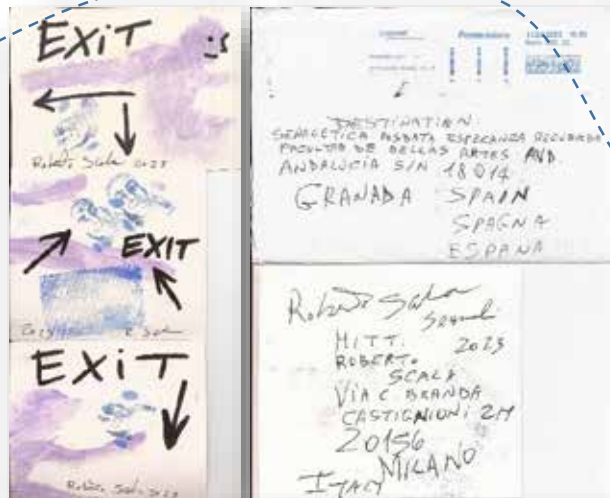 EXiT
Roberto Scala 2023
EXIT
2023
R Scala
EXiT
Roberto Scala 2023
DESTINATION:
FACULTAD DE BELLAS ARTES AVD.
ANDALUCIA S/N 18014
GRANADA SPAIN
SPAGNA
ESPANA
Roberto Scala
MITT. 2023
ROBERTO
SCALA
VIA C. BRANDA
CASTIGNIONI 2M
20156
MILANO
ITALY